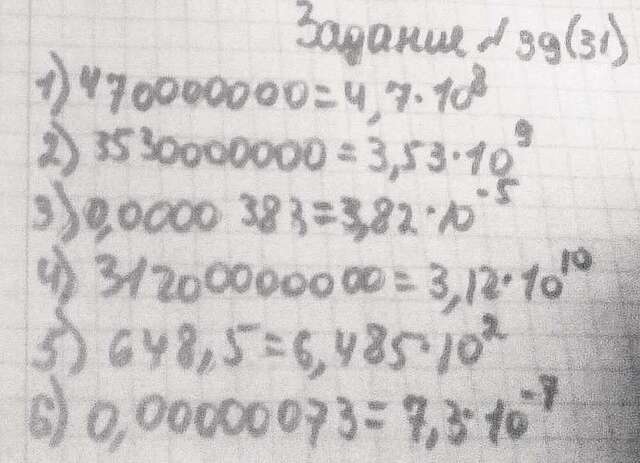 Задание № 39(31)
1) 470000000=4,7·10⁸
2) 3530000000=3,53·10⁹
3) 0,0000 383=3,82·10⁻⁵
4) 31200000000=3,12·10¹⁰
5) 648,5=6,485·10²
6) 0,00000073=7,3·10⁻⁷